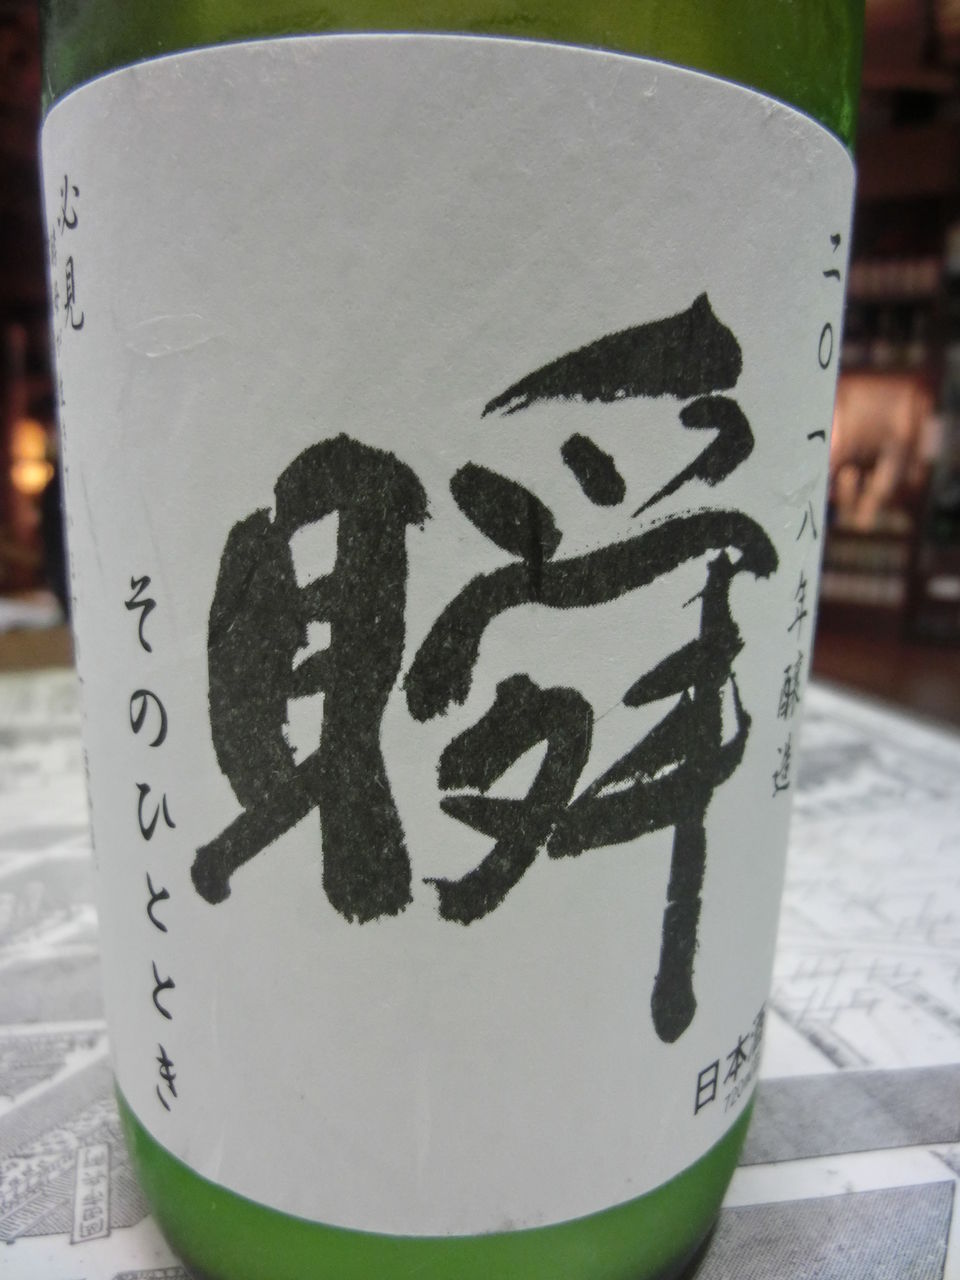 二〇一八年醸造
瞬
そのひととき
必見
日本酒
720